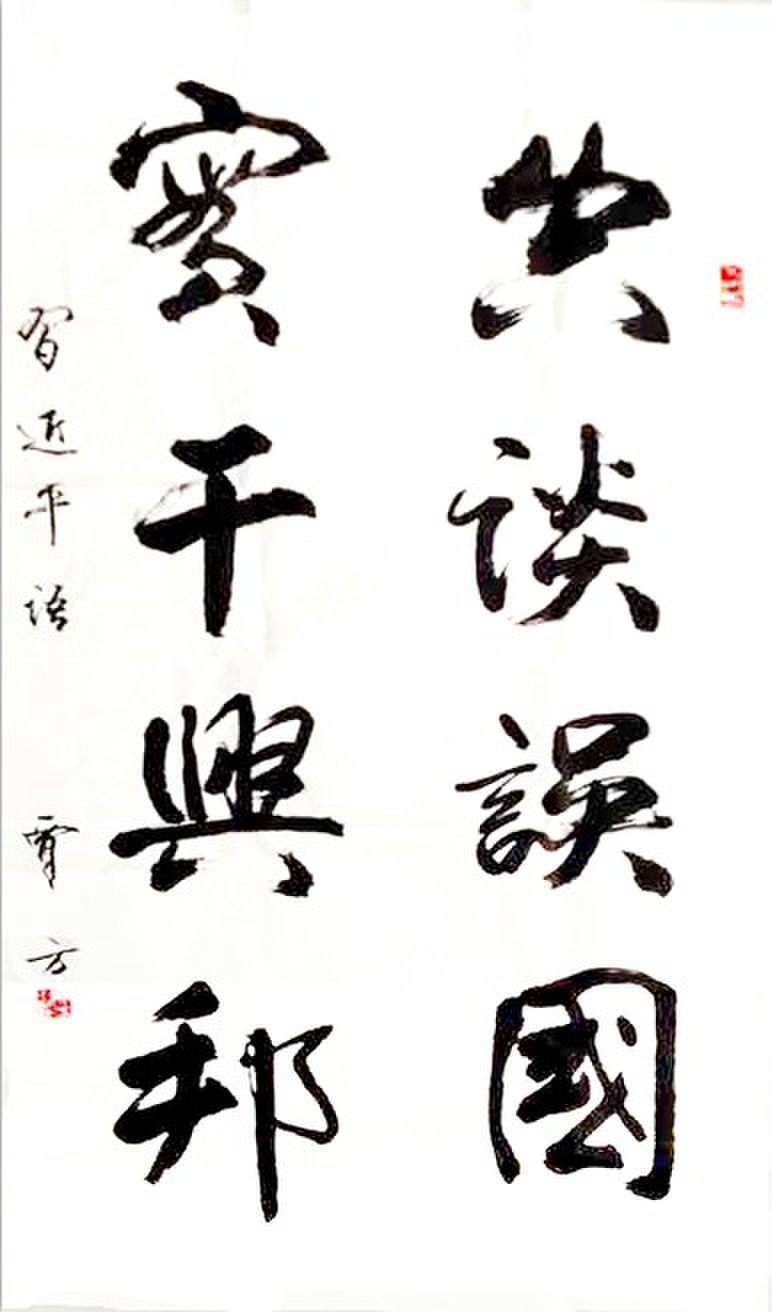 談誤國
實干興邦
習近平語 賈方